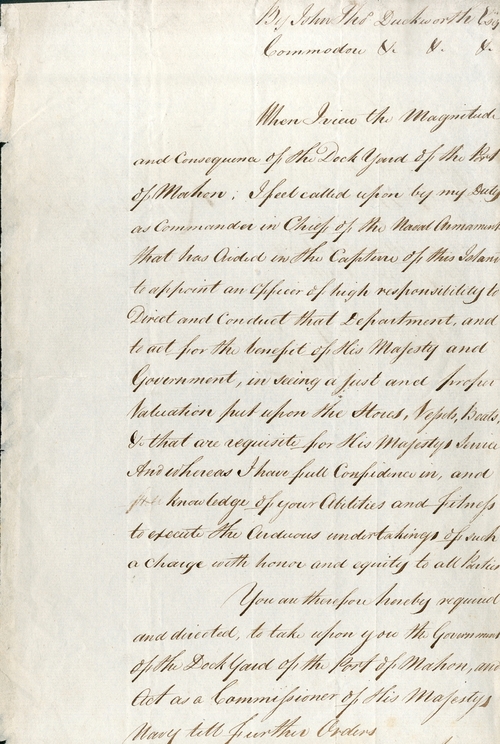 By John Thos Duckworth Esq
Commodore &. &. &.
When I view the Magnitude
and Consequence of the Dock Yard of the Port
of Mahon; I feel called upon by my Duty
as Commander in Chief of the Naval Armament
that has Aided in the Capture of this Island
to appoint an Officer of high responsibility to
Direct and Conduct that Department, and
to act for the benefit of His Majesty and
Government, in seeing a just and proper
Valuation put upon the Stores, Vessels, Boats,
&c that are requisite for His Majestys Service
And whereas I have full Confidence in, and
knowledge of your Abilities and fitness
to execute the Arduous undertakings of such
a charge with honor and equity to all Parties
You are therefore hereby required
and directed, to take upon you the Government
of the Dock Yard of the Port of Mahon, and
Act as a Commissioner of His Majestys
Navy till further Orders